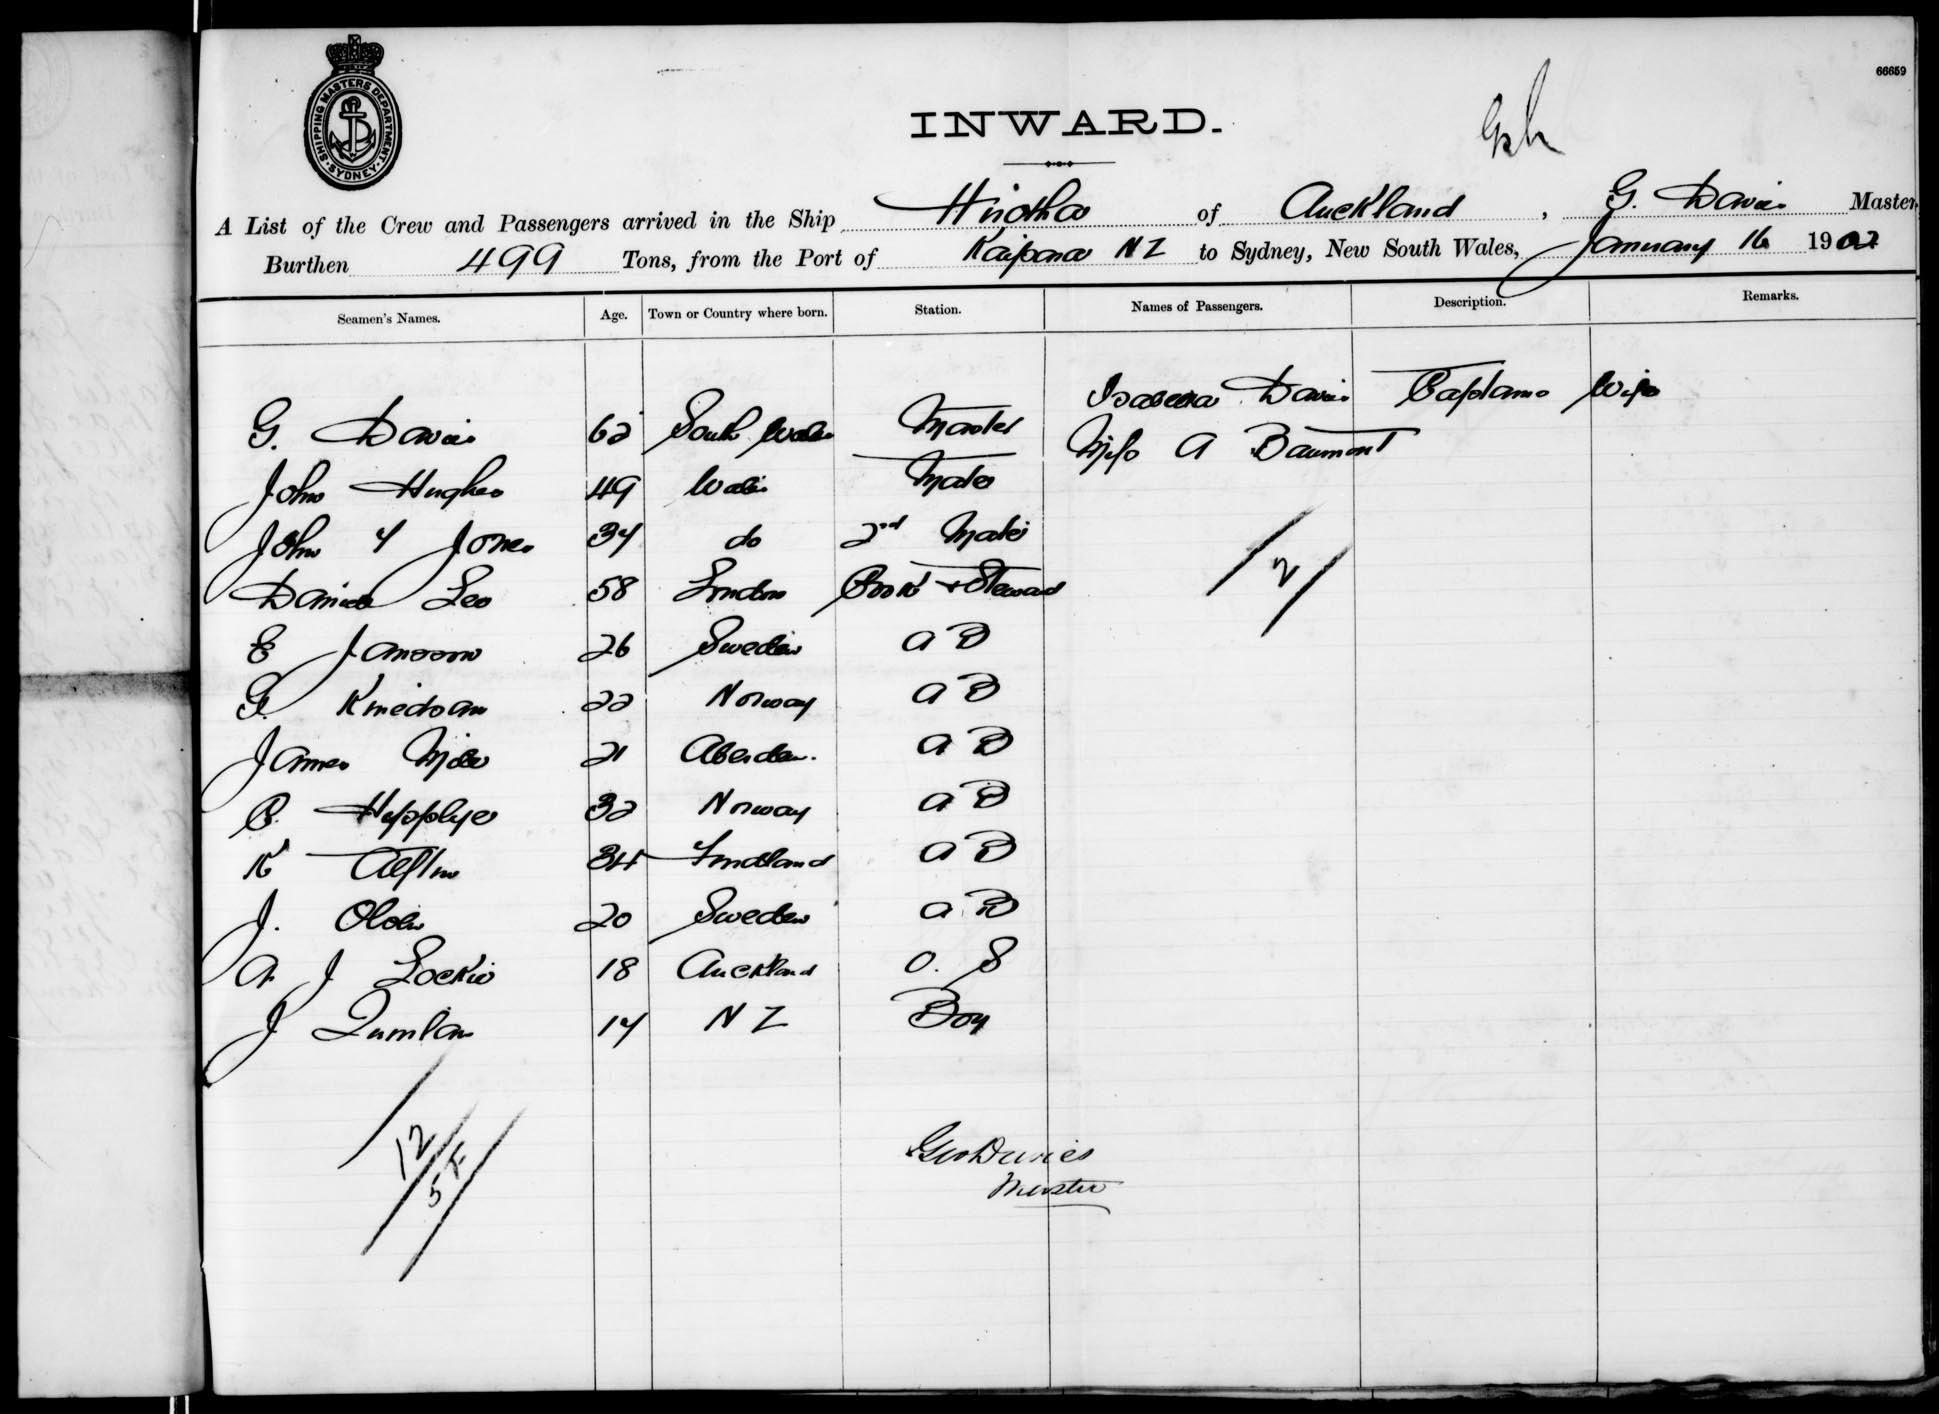 66659
SHIPPING MASTERS DEPARTMENT
SYDNEY
INWARD.
A List of the Crew and Passengers arrived in the Ship of Auckland, G. Davies Master
Burthen 499 Tons, from the Port of Kaipara NZ to Sydney, New South Wales, January 16 1902
Seamen's Names. Age. Town or Country where born. Station. Names of Passengers. Description. Remarks.
G. Davies 62 South Wales Master Isabella Davies Captains Wife
John Hughes 49 Wales Mate Miss A Baumont
John Y Jones 34 do 2nd Mate
Daniel Leo 58 London Cook + Steward
2
E Jansson 26 Sweden A B
G. 22 Norway A B
James 21 Aberdeen. A B
C. 32 Norway A B
K 34 A B
J. Olsen 20 Sweden A B
A J Lockie 18 Auckland O. S
J Quinlan 14 N Z Boy
12
5 F
Geo Davies
Master